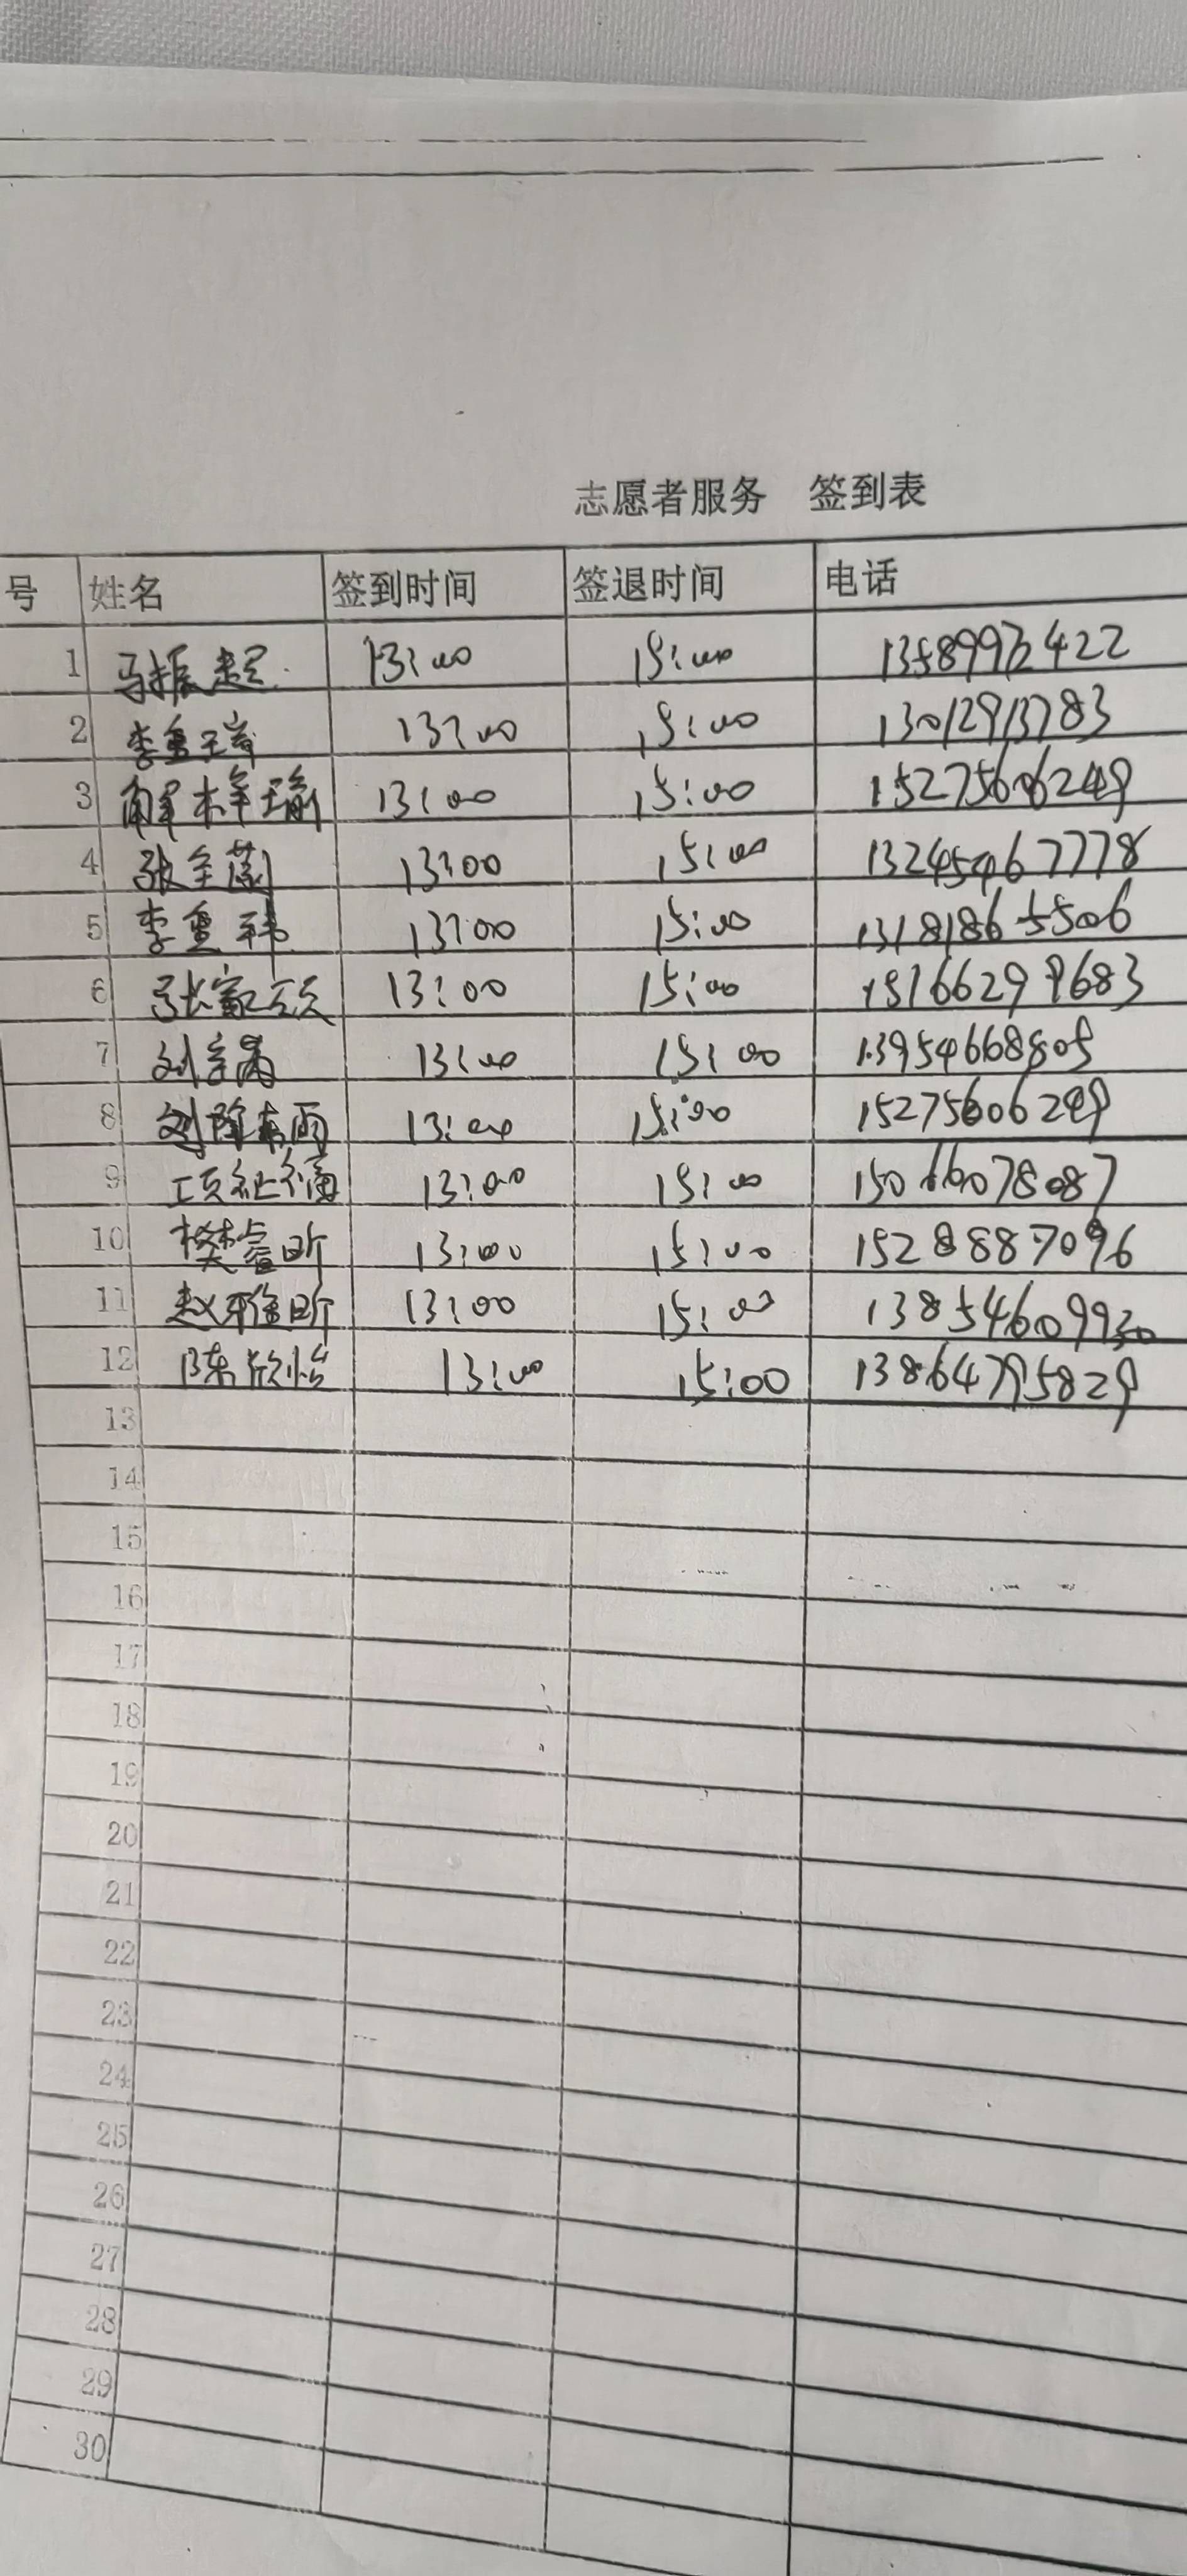 志愿者服务 签到表
号 姓名 签到时间 签退时间 电话
1 马振超 13:00 15:00
2 13:00 15:00 13012913783
3 13:00 15:00 15275606249
4 13:00 15:00 13245467778
5 李重韩 13:00 15:00 13181865506
6 13:00 15:00 15166299683
7 13:00 15:00 13954668805
8 13:00 15:00 15275606249
9 13:00 15:00
10 樊睿昕 13:00 15:00 15288887096
11 赵雅昕 13:00 15:00 13854609930
12 陈欣怡 13:00 15:00 13864795829
13
14
15
16
17
18
19
20
21
22
23
24
25
26
27
28
29
30